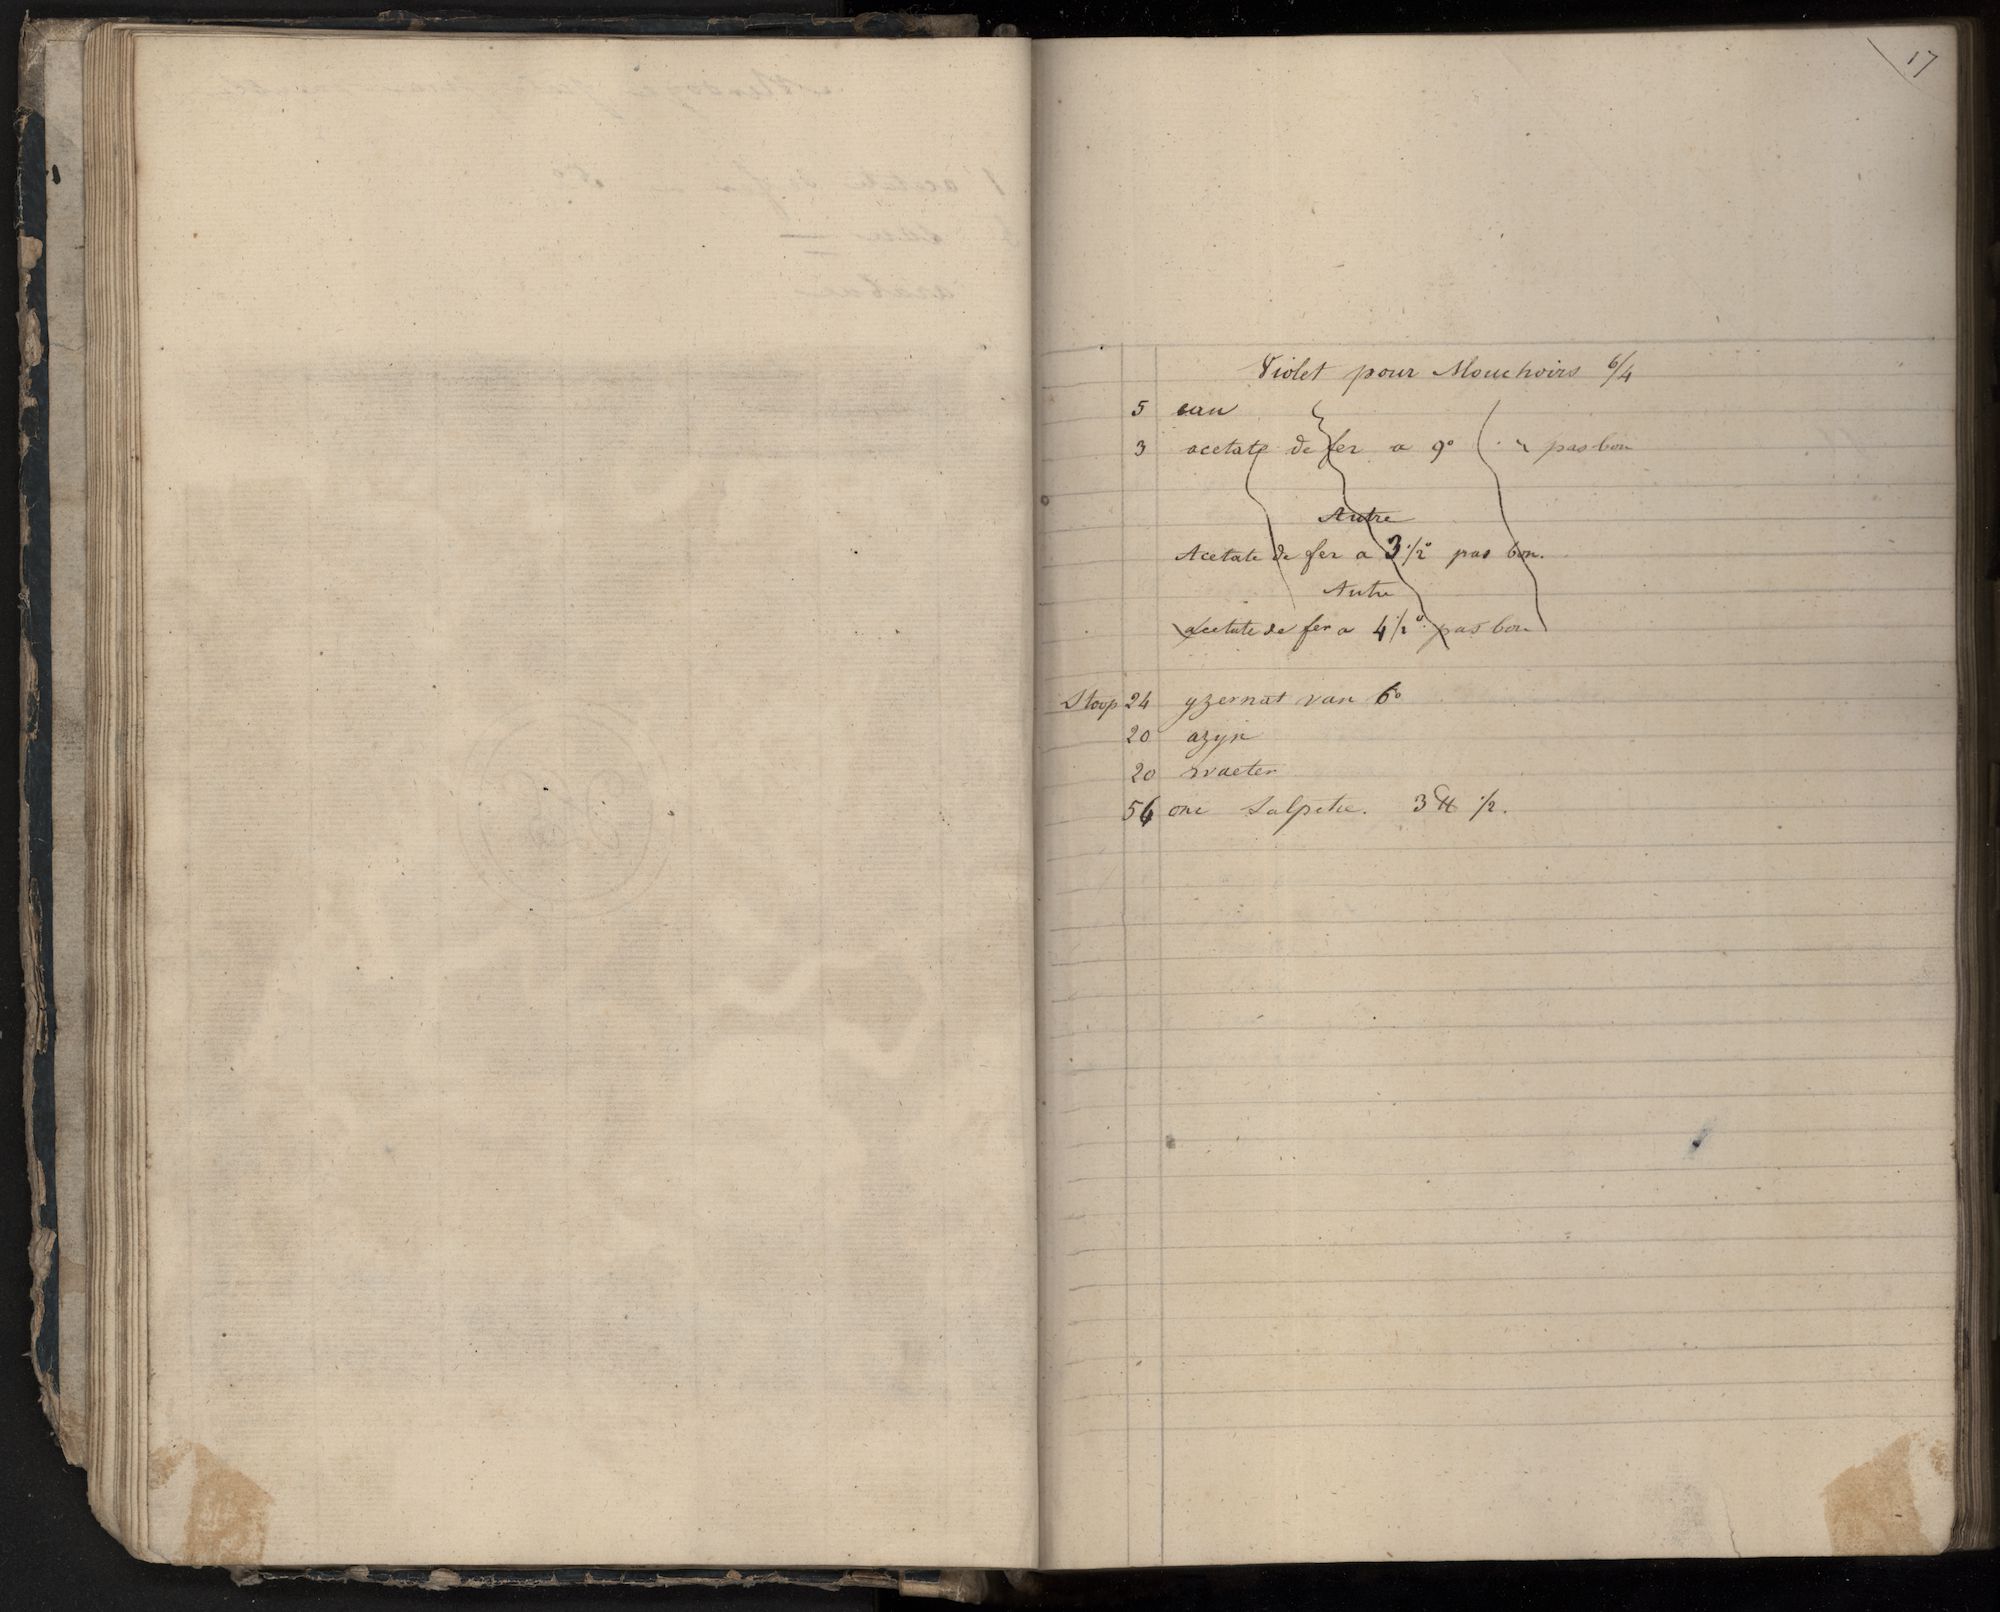 17
Violet pour Mouchoirs 6/4
5 eau
3 acetate de fer a 9° pas bon
Autre
Acetate de fer a 3 1/2° pas bon.
Autre
acetate de fer a 4 1/2° pas bon
Stoop 24 yzernat van 6°
20 azyn
20 waeter
56 onc Salpetre. 3 ℔ 1/2.